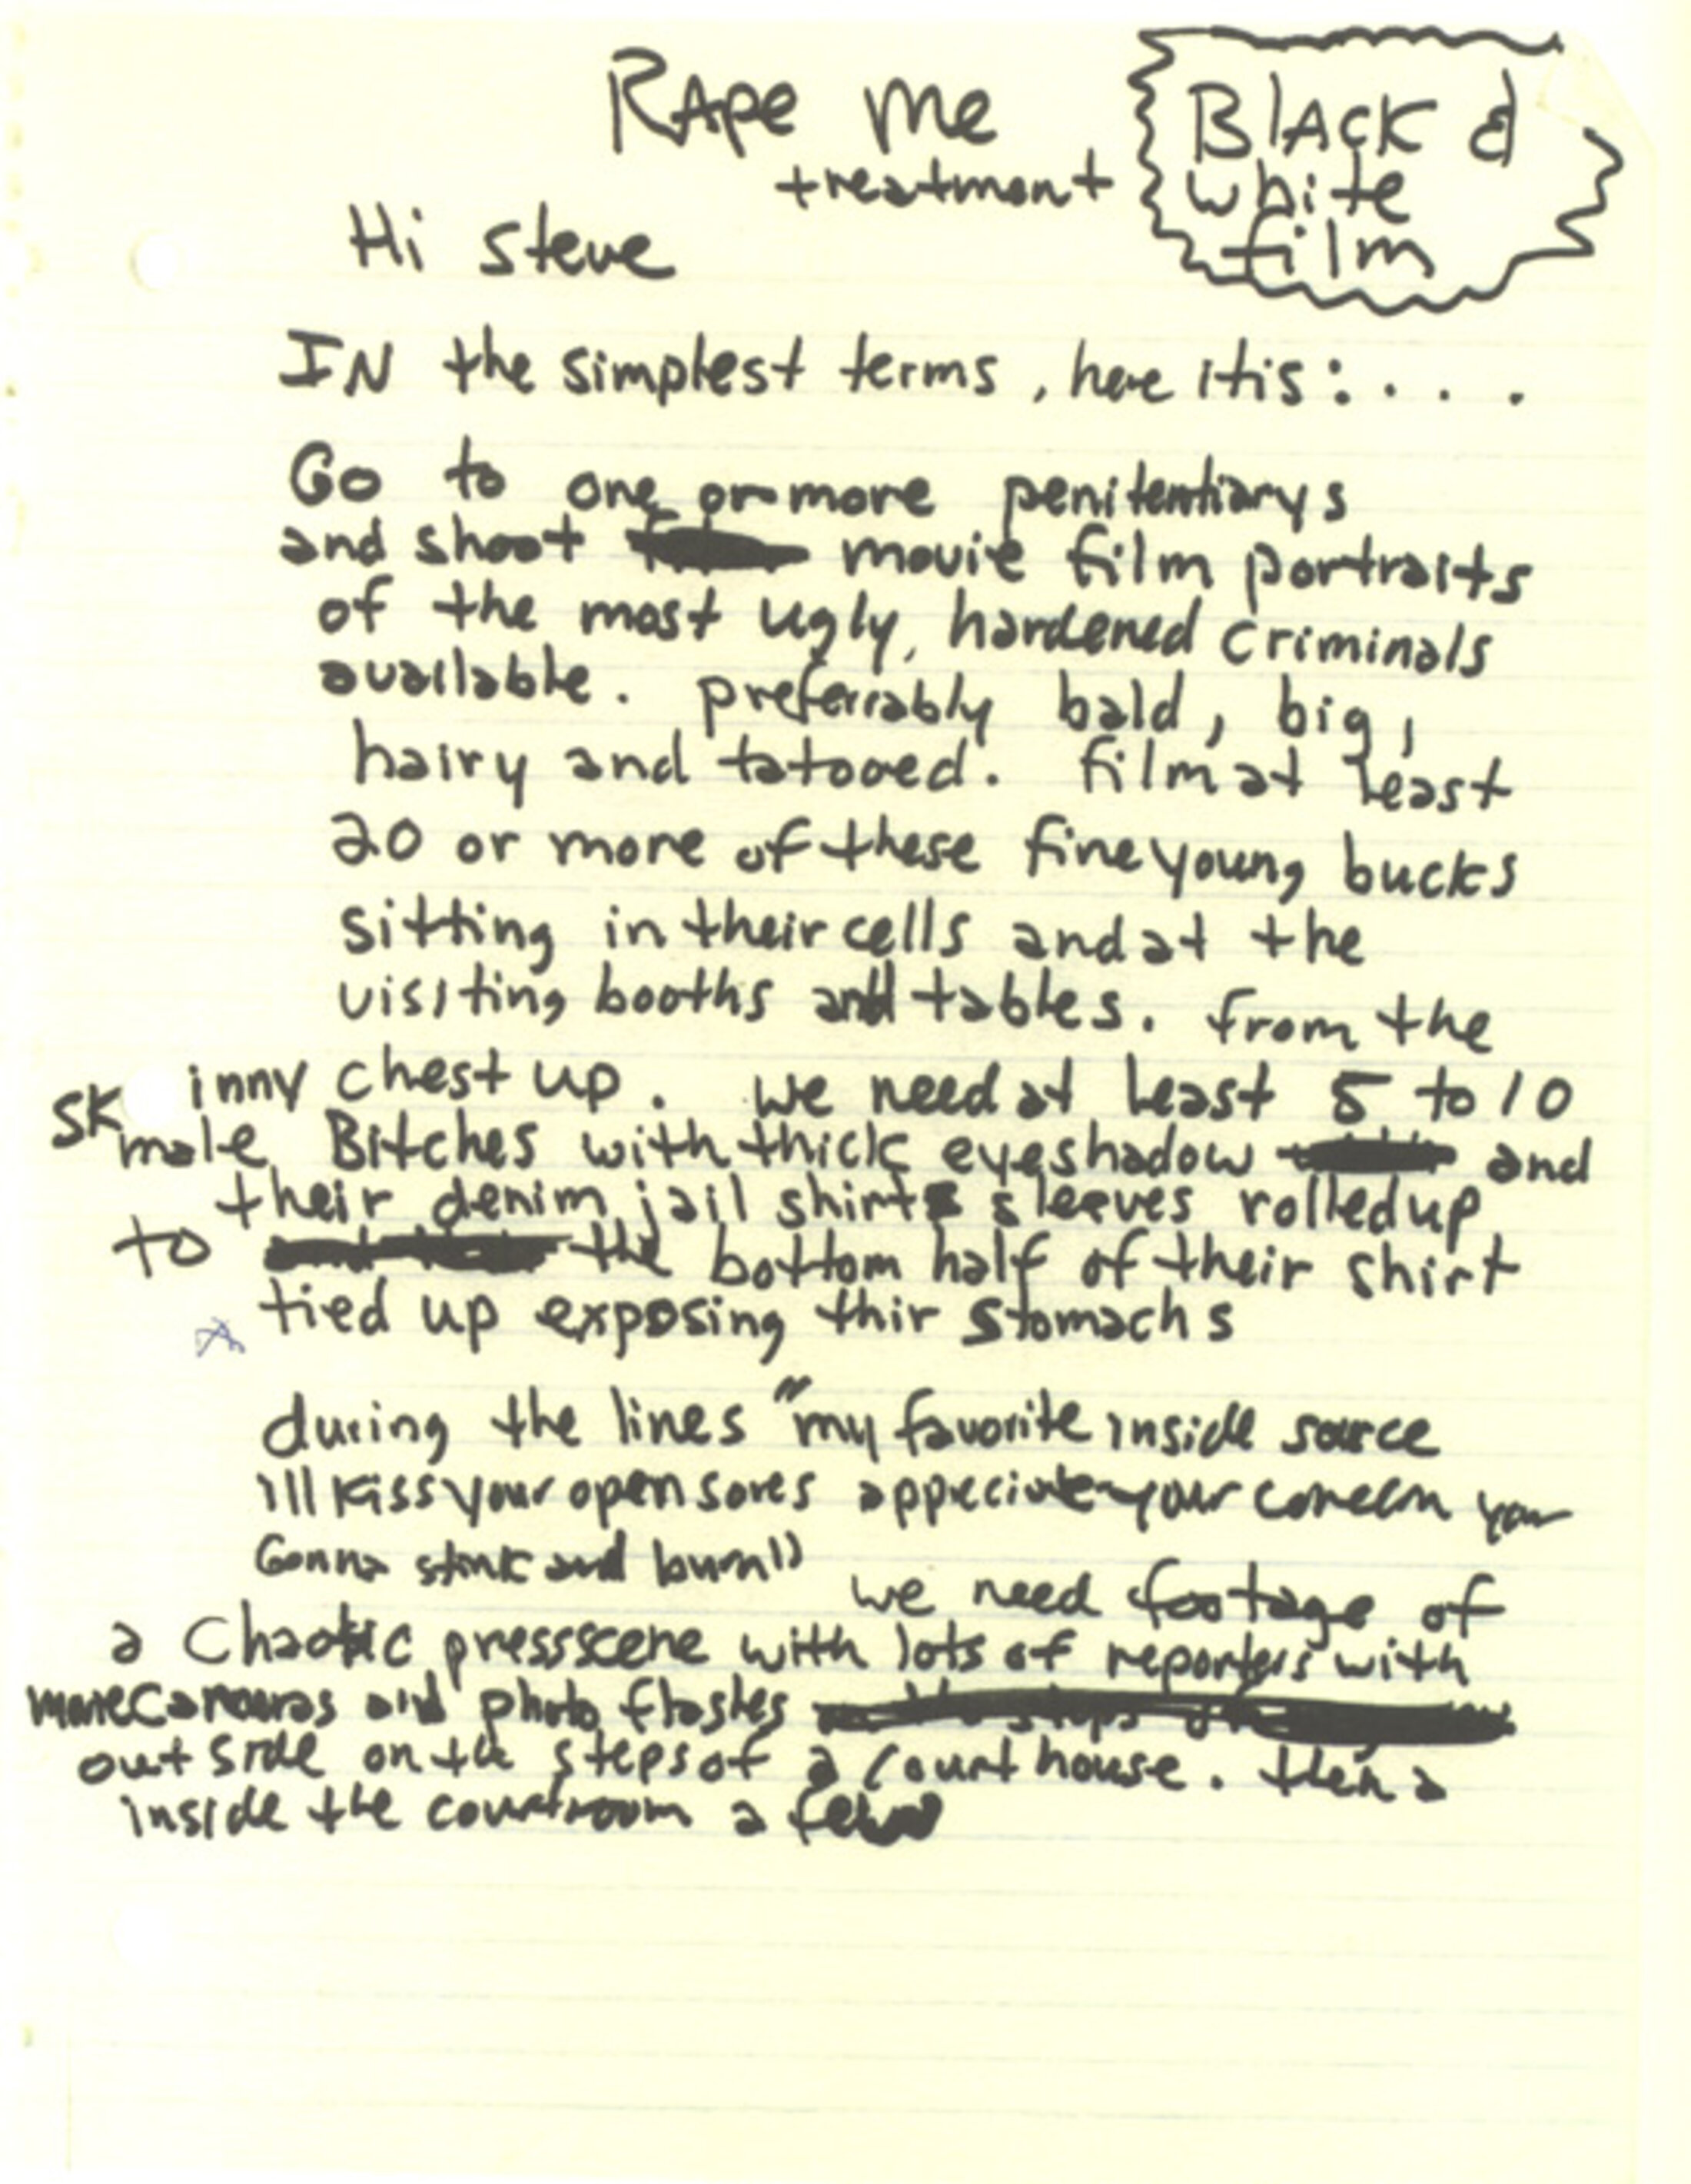 Rape Me
treatment
Black &
white
film
Hi Steve
IN the simplest terms, here it is: . . .
Go to one or more penitentiarys
and shoot movie film portraits
of the most ugly, hardened criminals
available. preferrably bald, big,
hairy and tatooed. film at least
20 or more of these fine young bucks
sitting in their cells and at the
visiting booths and tables. from the
chest up. we need at least 5 to 10
skinny
male Bitches with thick eyeshadow and
their denim jail shirts sleeves rolled up
to the bottom half of their shirt
tied up exposing thir stomachs
during the lines "my favorite inside source
ill kiss your open sores appreciate your concern your
Gonna stink and burn"
we need footage of
a Chaotic press scene with lots of reporters with
and photo flashes
out side on the steps of a court house. then a
inside the courtroom a few